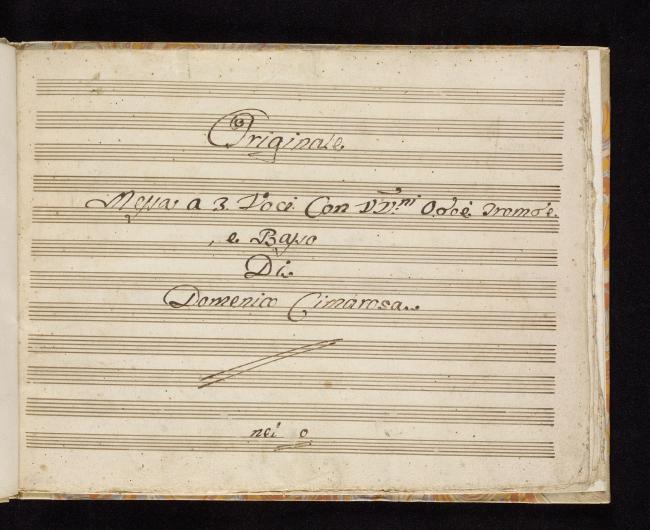 Originale
Messa a 3. Voci Con VV.ni Oboè Trombe
e Basso
Di
Domenico Cimarosa
nei